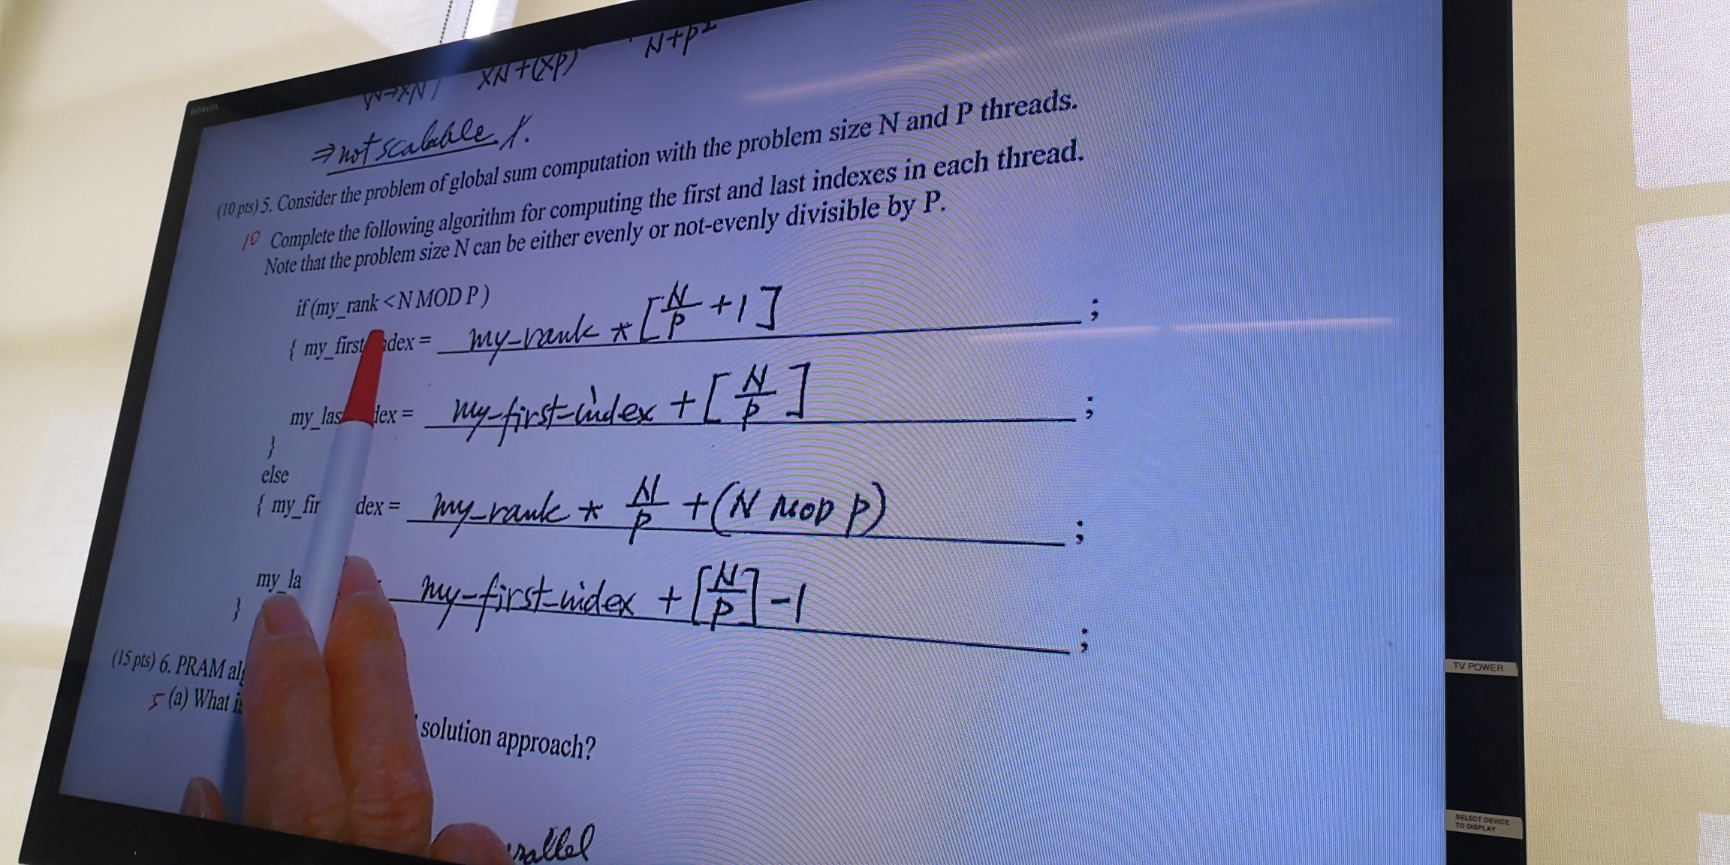 BRAVIA
XN+(XP) N+P²
⇒ not scalable
(10 pts) 5. Consider the problem of global sum computation with the problem size N and P threads.
10 Complete the following algorithm for computing the first and last indexes in each thread.
Note that the problem size N can be either evenly or not-evenly divisible by P.
if (my_rank < N MOD P )
{ my_first dex = my-rank * [N/P + 1] ;
my_las dex = my-first-index + [N/P] ;
}
else
{ my_fir dex = my-rank * N/P + (N MOD P) ;
my_la my-first-index + [N/P] - 1 ;
}
(15 pts) 6. PRAM
5 (a) What solution approach?
TV POWER
SELECT DEVICE
TO DISPLAY